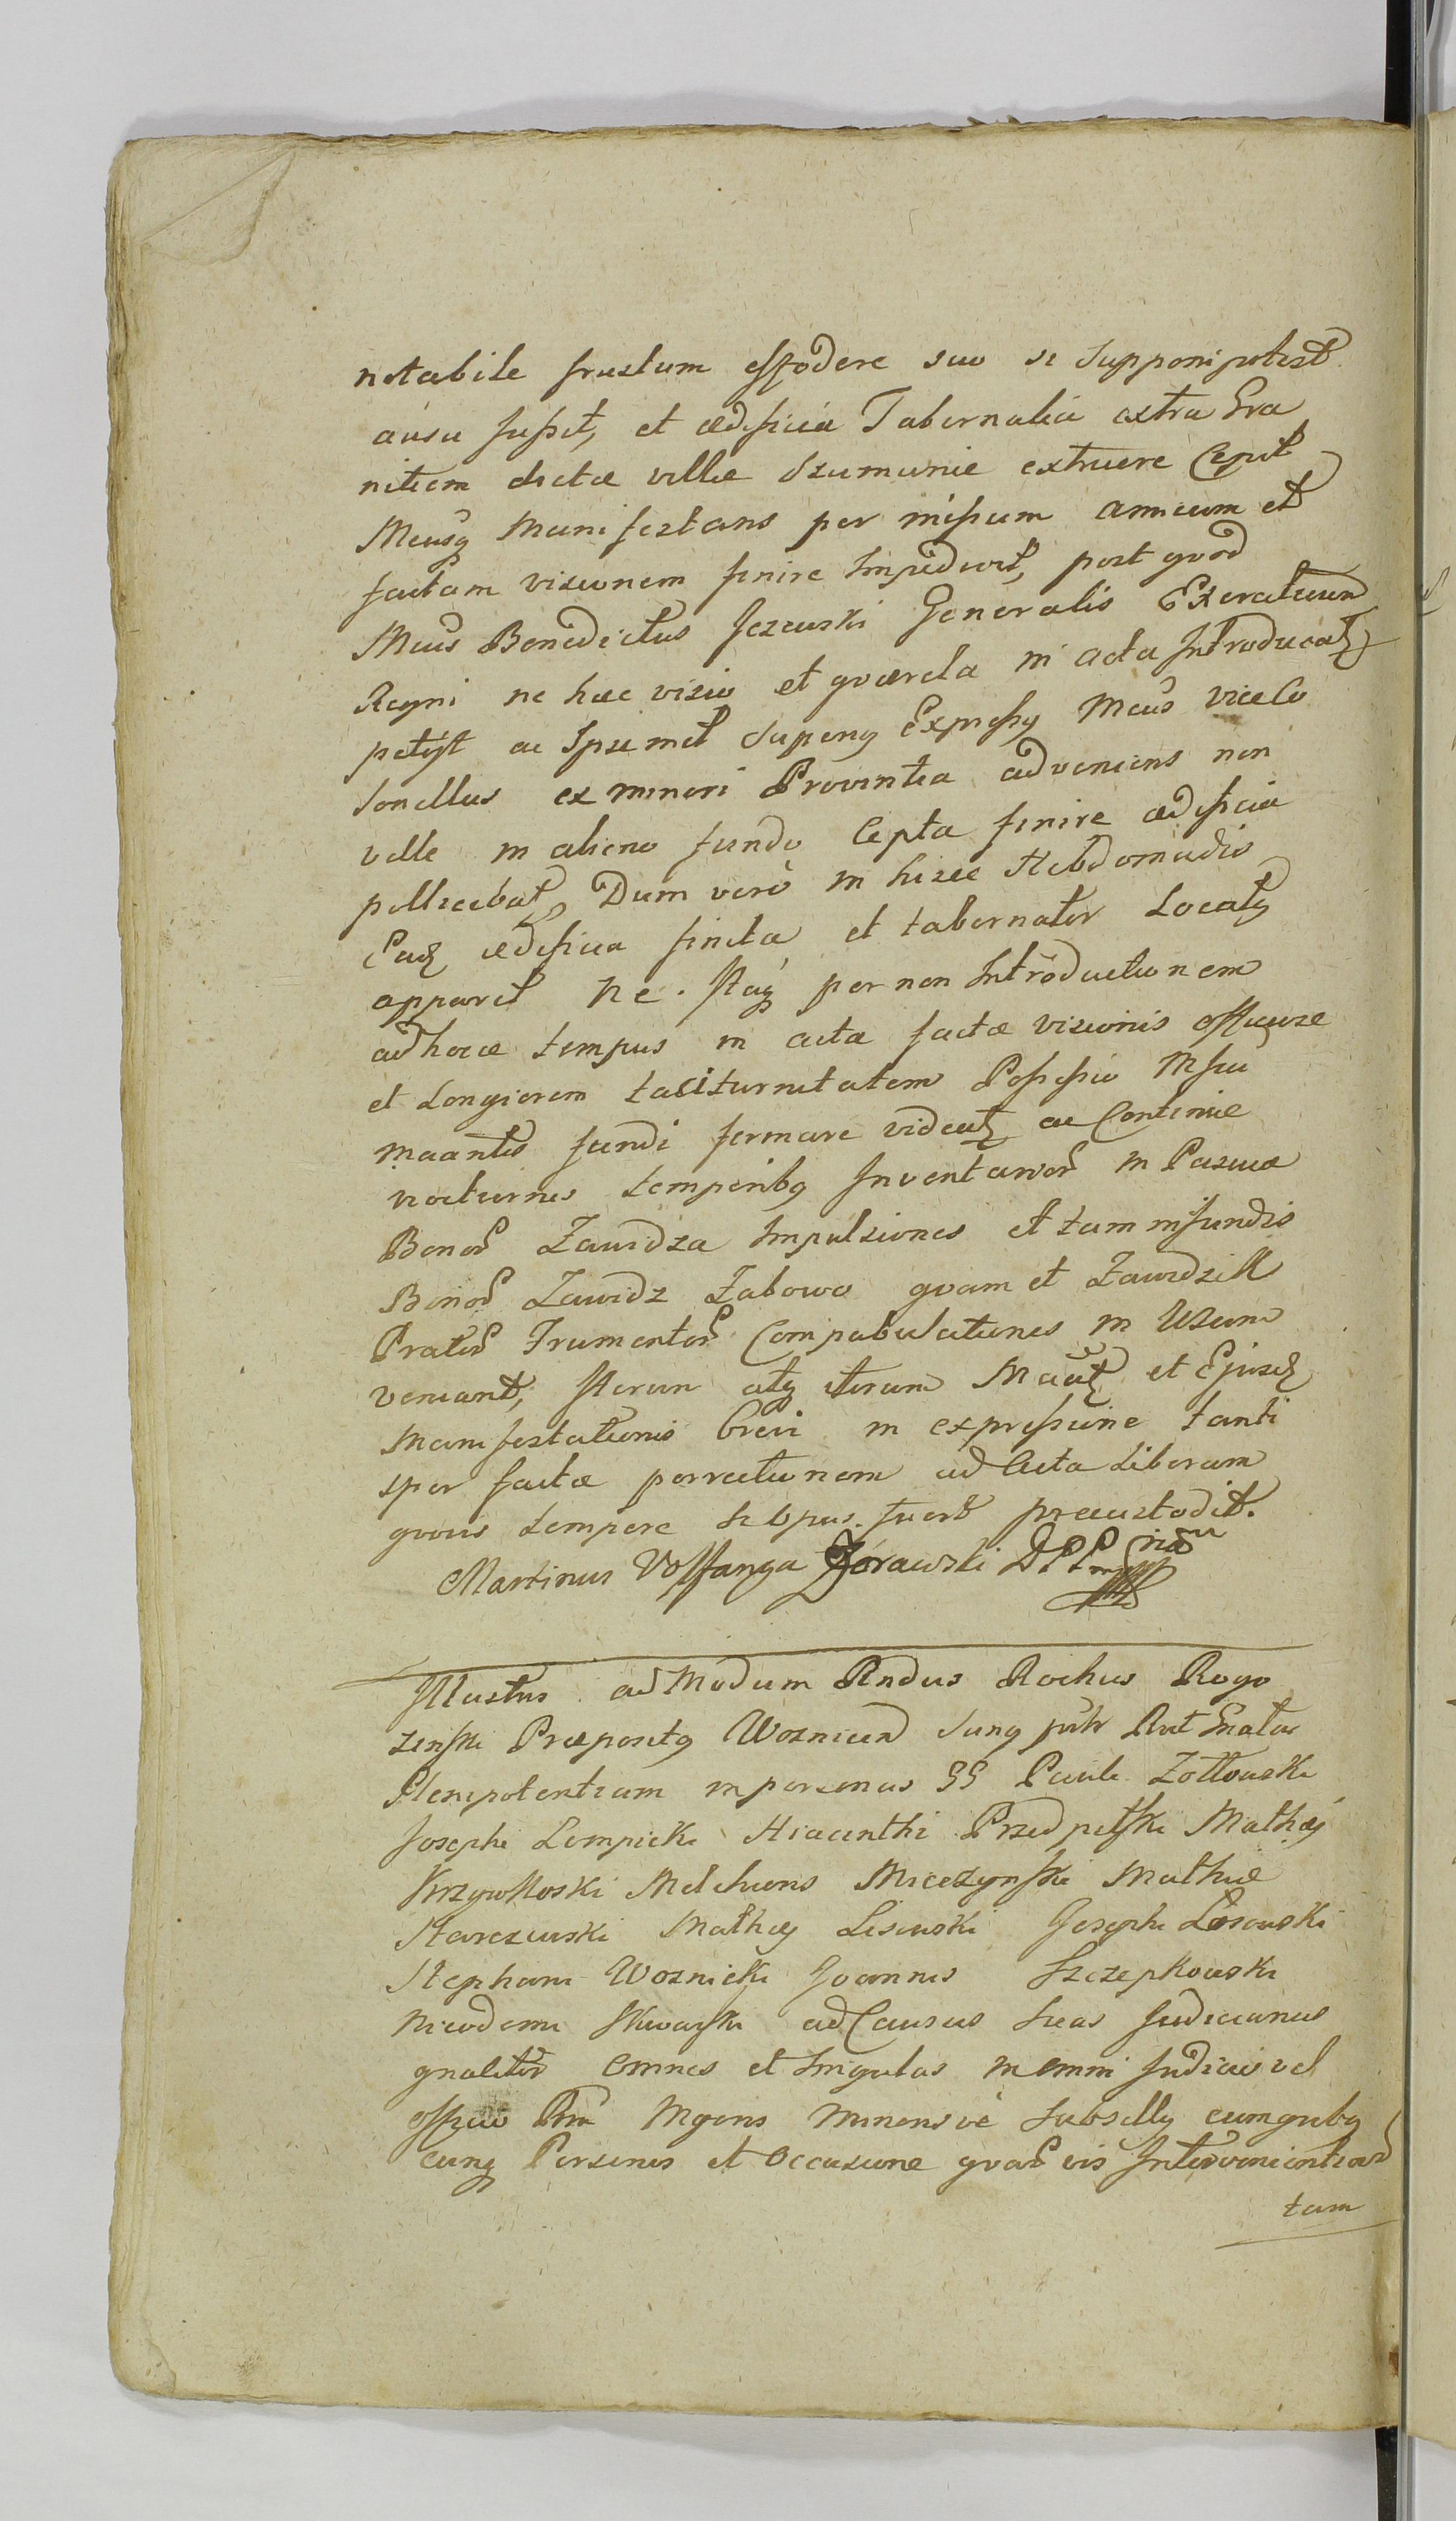 notabile frustum effodere suo si supponi potest
ausu jussit, et ædificia Tabernalia extra Gra
nitiem dictæ villæ Szumanie extruere Cepit
Meusq Manifestans per missum amicum et
factam visionem finire Impedivit, post quod
Meus Benedictus Jezewski Generalis Exercituum
Regni ne hæc visio et quærela in acta Introducatz
petijt ac Ipsemet Superq Expressq Meus viceCo
lonellus ex minori Provintia adveniens non
velle in alieno fundo Cepta finire ædificia
pollicebatz Dum vero in hisce Hebdomadis
Eadz ædificia finita et tabernator Locatq
apparet Ne. Itaq per non Introductionem
adhocce tempus in acta factæ visionis officiose
et Longiorem taciturnitatem Possessio
Maantis fundi firmare videatz ac Continuæ
nocturnis temporibq Inventarior in Pascua
Bonor Zawidza Impulsiones et tam in fundis
Bonor Zawidz Zabowo quam et Zawidzik
Prator Frumentor Compabulationes in Usum
veniant, Iterum atq iterum Maatz et Ejusdz
Manifestationis brevi in expressione tanti
sper factæ porrectionem ad Acta Liberam
quovis tempore si opus fuerit præcustodit.
Martinus Wolffanga Zórawski
Illustris ad Modum Rndus Rochus Rogo
zinski Præpositq Woznicen
Plenipotentiam in personas GG Pauli Zołtowski
Josephi Lempicki Hiacinthi Przedpełski Mathæj
Krzywkoski Melchioris Mieczynski Mathiæ
Starczewski Mathæj Lisowski Josephi Lisowski
Stephani Woznicki Joannis Szczepkowski
Nicodemi Skwarski ad Causas suas Judiciarias
gnaliter omnes et singulas in omni Judicio vel
officio Rni Mgoris Minorisve Subsellij cumquibq
cunq Personis et occasione quavis Intervenientiar
tam